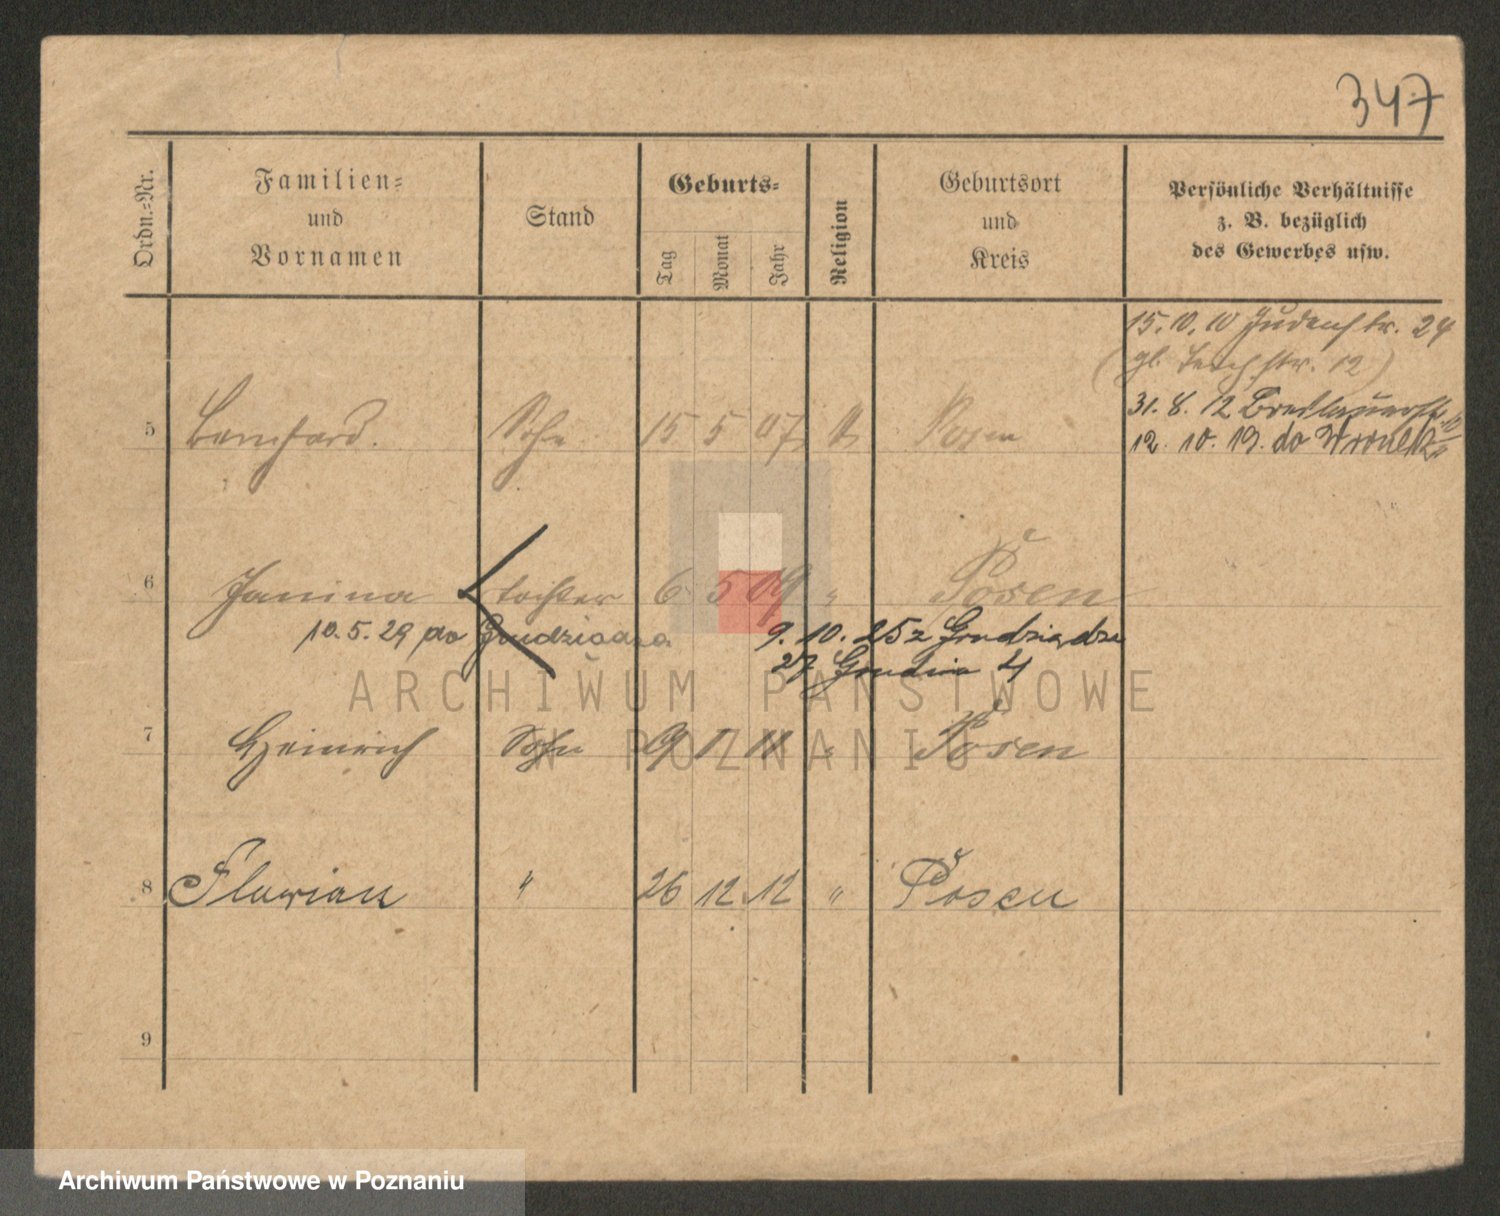 347
Ordn.-Nr. Familien- und Vornamen Stand Geburts- Tag Monat Jahr Religion Geburtsort und Kreis Persönliche Verhältnisse z. B. bezüglich des Gewerbes usw.
15. 10. 10 Judenstr. 24
(gl. Teichstr. 12)
31. 8. 12 Breslauerstr.
5 Bernhard. Sohn 15 5 07 k Posen 12. 10. 19. do Wronek
6 Janina tochter 6 5 09 " Posen
10. 5. 29 do Grudziądza 9. 10. 25 z Grudziądza
27 Grudnia 4
ARCHIWUM PAŃSTWOWE
7 Heinrich Sohn 9 1 11 " Posen
W POZNANIU
8 Florian " 26 12 12 " Posen
9
Archiwum Państwowe w Poznaniu